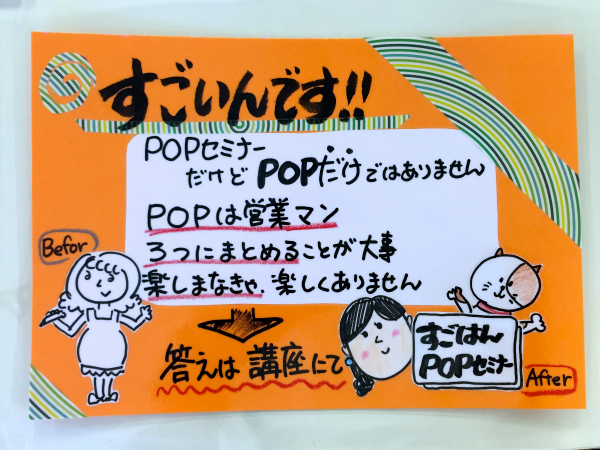 すごいんです!!
POPセミナー
だけど POPだけではありません
POPは営業マン
3つにまとめることが大事
楽しまなきゃ、楽しくありません
Befor
答えは講座にて
すごはん
POPセミナー
After